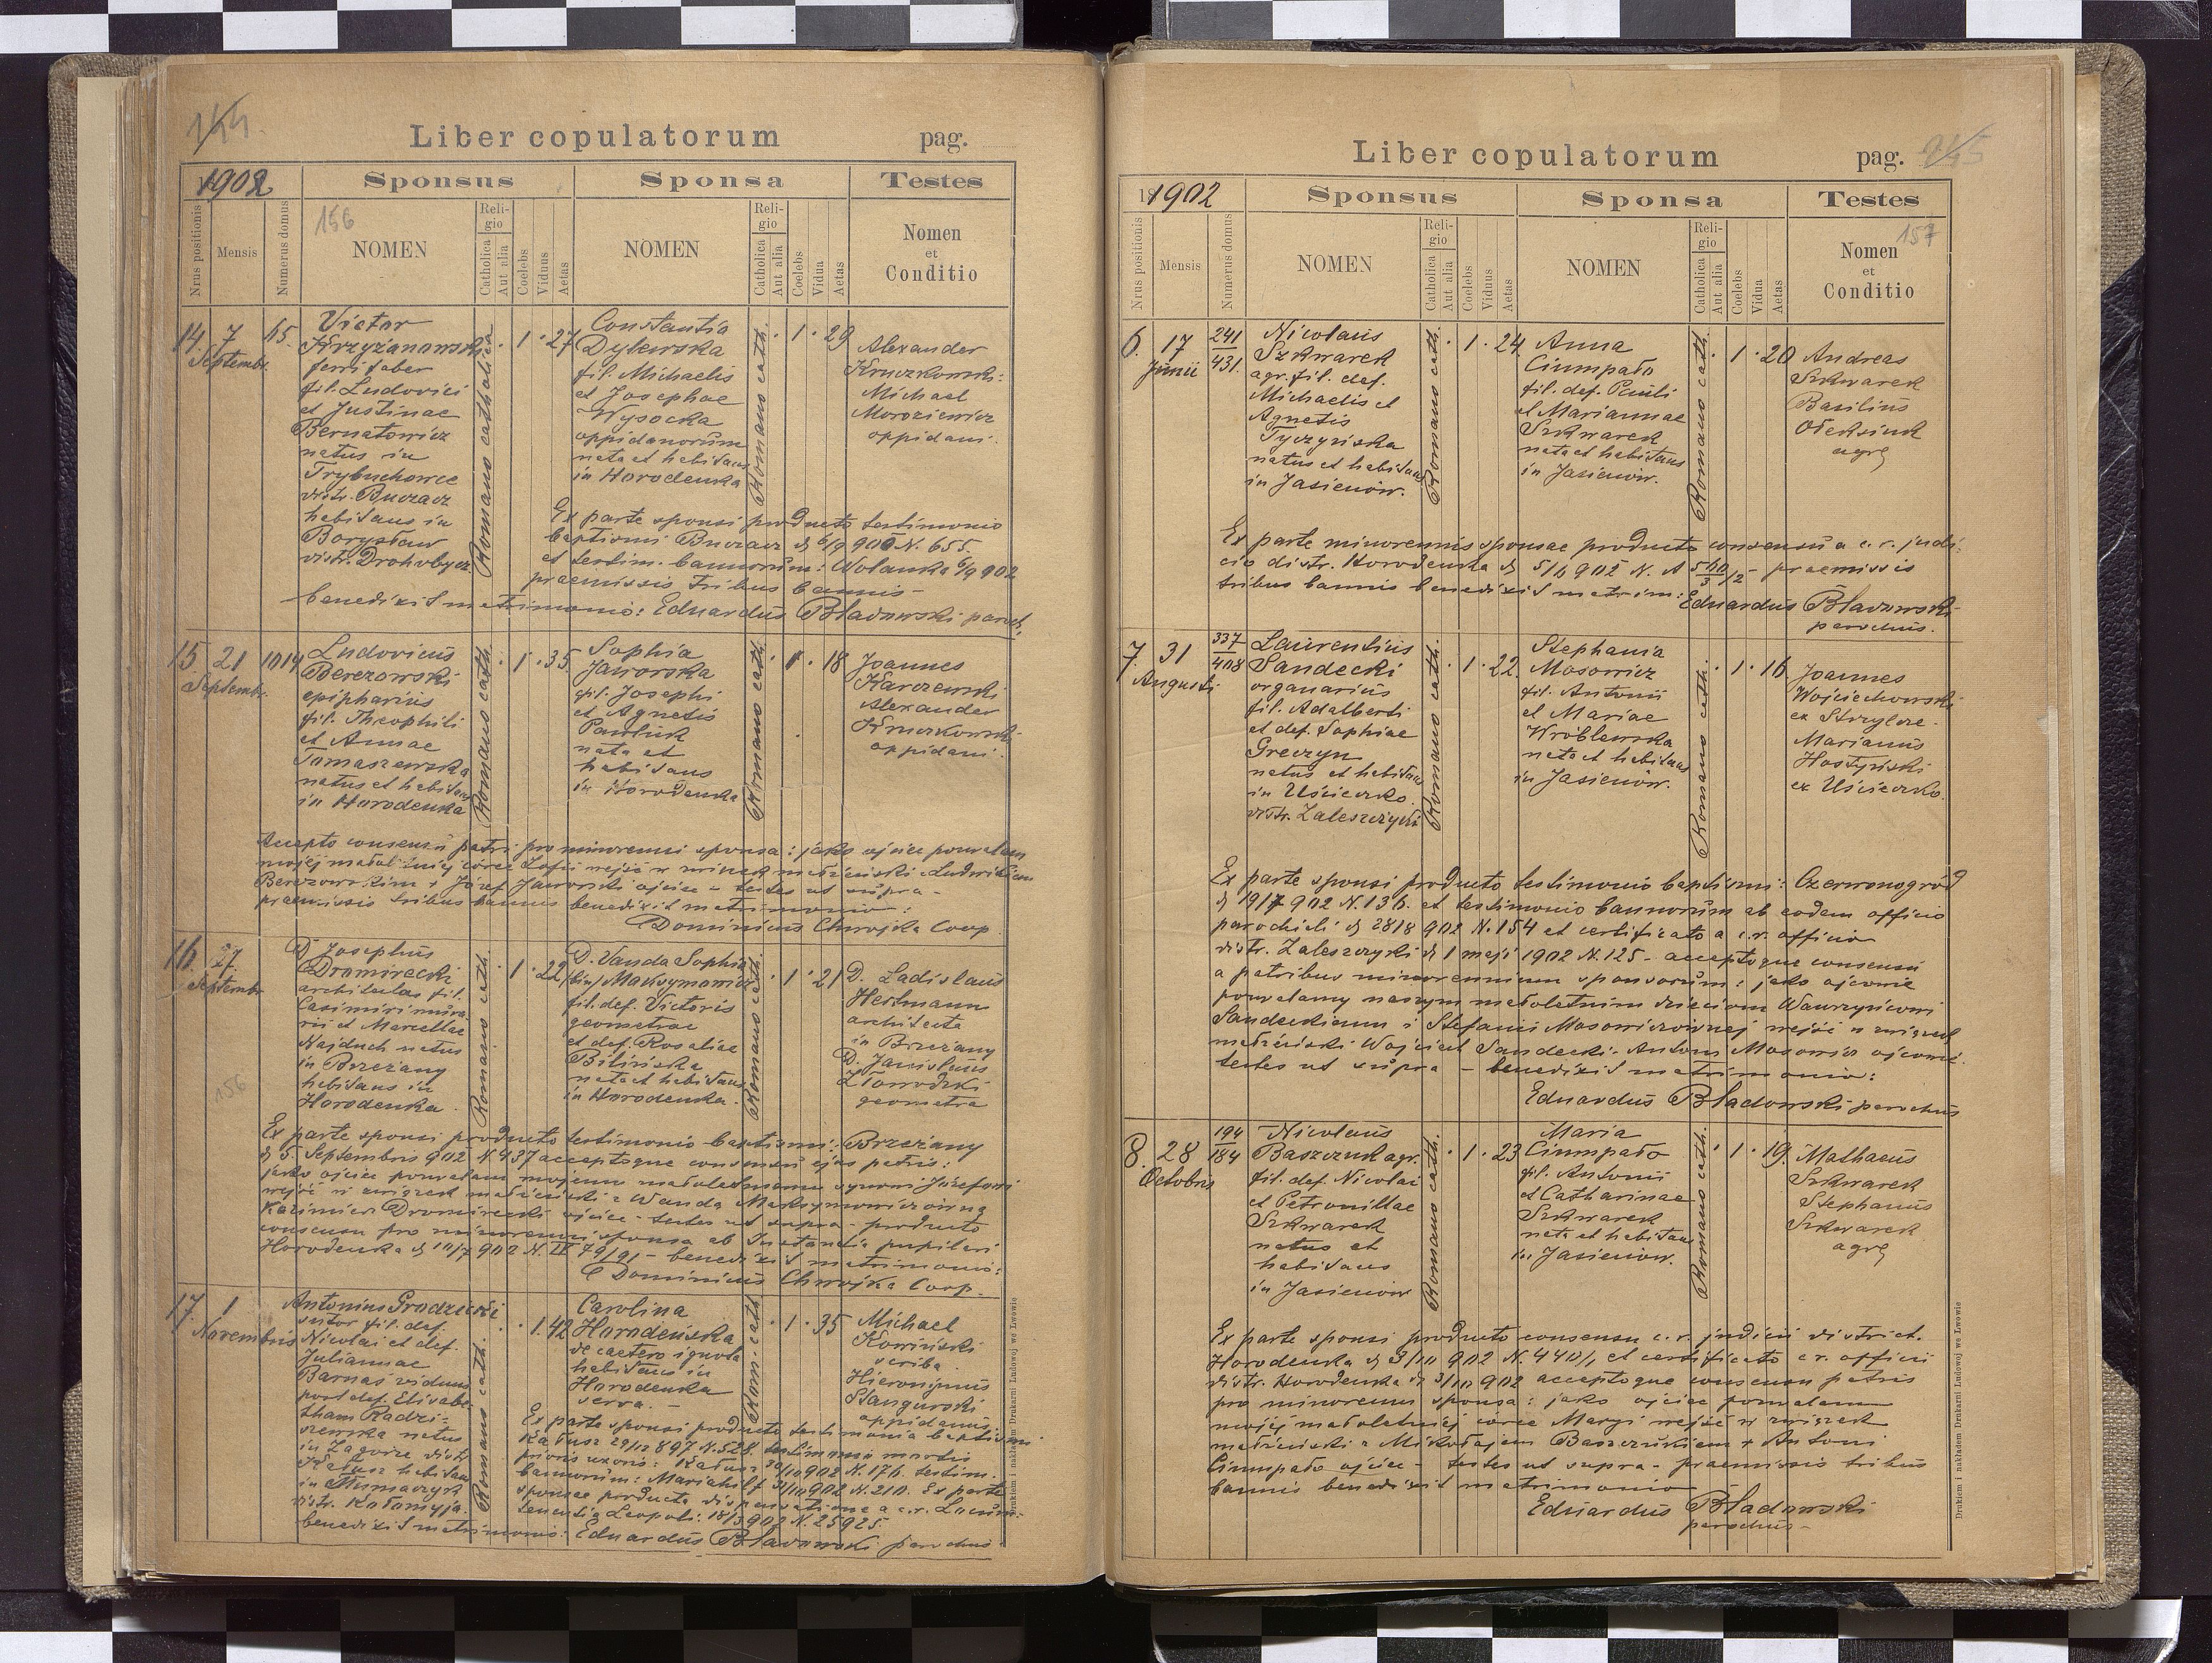 144.
Liber copulatorum pag.
1902
Sponsus Sponsa Testes
Nrus positionis
Mensis
Numerus domus
156
NOMEN
Religio
Catholica
Aut alia
Coelebs
Viduus
Aetas
NOMEN
Religio
Catholica
Aut alia
Coelebs
Vidua
Aetas
Nomen
et
Conditio
14. 7 Septembr. 65.
Victor
Krzyżanowski
ferri faber
fil. Ludovici
et Justinae
Bernatowicz
natus in
Trybuchowce
distr. Buczacz
habitans in
Borysław
distr. Drohobycz.
Romano catholica
1 · 27
Constantia
Dylewska
fil. Michaelis
et Josephae
Wysocka
oppidanorum
nata et habitans
in Horodenka
Romano cath.
1 · 29
Alexander
Kruczkowski
Michael
Moroziewicz
oppidani.
Ex parte sponsi producto testimonio
baptismi Buczacz d 6/9 902 N. 655.
et testim. bannorum: Wolanka 6/9 902
praemissis tribus bannis
benedixit matrimonio: Eduardus Bladowski paroch.
15 21 Septembr. 1014
Ludovicus
Berezowski
ephipharius
fil. Theophili
et Annae
Tomaszewska
natus et habitans
in Horodenka
Romano cath.
1 · 35
Sophia
Jaworska
fil. Josephi
et Agnetis
Pawluk
nata et
habitans
in Horodenka
Romano cath.
1 · 18
Joannes
Karczewski
Alexander
Kruczkowski
oppidani.
Accepto consensu patri pro minorenni sponsa: jako ojciec pozwalam
mojej małoletniej córce Zofii wejść w związek małżeński z Ludwikiem
Berezowskim + Józef Jaworski ojciec - testes ut supra -
praemissis tribus bannis benedixit matrimonio:
Dominicus Chwojka Coop.
16. 27. Septembr
D. Josephus
Dromirecki
architectas fil.
Casimiri mura-
rii et Marcellae
Najduch natus
in Brzeżany
habitans in
Horodenka.
Romano cath.
1 · 22
D. Vanda Sophia
(bin) Maksymowicz
fil. def. Victoris
geometrae
et def. Rosaliae
Bilińska
nata et habitans
in Horodenka.
Romano cath.
1 · 21
D. Ladislaus
Hermann
architecta
in Brzeżany
D. Janislaus
Złowodzki
geometra
156
Ex parte sponsi producto testimonio baptismi: Brzeżany
d 5. Septembris 902 N. 437 acceptoque consensu ejus patris:
jako ojciec pozwalam mojemu małoletniemu synowi Józefowi
wejść w związek małżeński z Wandą Maksymowiczówną
Kazimierz Dromirecki ojciec - testes ut supra - producto
consensu pro minorenni sponsa ab Instantia pupilari
Horodenka d 10/7 902 N. II 79/91 - benedixit matrimonio:
Dominicus Chwojka Coop.
17. 1 Novembris
Antonius Grodzicki
sutor fil. def.
Nicolai et def.
Juliannae
Barnas viduus
post def. Elisabe-
tham Radzi-
szewska natus
in Zagórze distr.
Kałusz habitans
in Tłumaczyk
distr. Kołomyja.
Romano cath.
1. 42
Carolina
Horodeńska
de caetero ignota
habitans in
Horodenka
serva. -
Rom. cath
1 · 35
Michael
Kowiński
scriba.
Hieronymus
Bangurski
oppidanus.
Ex parte sponsi producto testimonio baptismi
Kałusz 29/12 897 N. 528. testimonio mortis
prioris uxoris: Kałusz 20/10 902 N. 176. testim.
bannorum: Mariahilf 31/10 902 N. 210. Ex parte
sponsae producta dispensatione a c. r. Locum-
tenentia Leopoli: 18/3 902 N. 25925.
benedixit matrimonio: Eduardus Bladowski parochus
Drukiem i nakładem Drukarni Ludowej we Lwowie
Liber copulatorum pag. 145
1902
Sponsus Sponsa Testes
Nrus positionis
Mensis
Numerus domus
NOMEN
Religio
Catholica
Aut alia
Coelebs
Viduus
Aetas
NOMEN
Religio
Catholica
Aut alia
Coelebs
Vidua
Aetas
157
Nomen
et
Conditio
6. 17 Junii 241/431.
Nicolaus
Szkwarek
agr. fil. def.
Michaelis et
Agnetis
Tyczyńska
natus et habitans
in Jasienów.
Romano cath.
1 · 24
Anna
Ciumpało
fil. def. Pauli
et Mariannae
Szkwarek
nata et habitans
in Jasienów.
Romano cath.
1 · 20
Andreas
Szkwarek
Basilius
Ołeksiuk
agr.
Ex parte minorennis sponsae producto consensu a c. r. judi-
cio distr. Horodenka d 5/6 902 N. A 560/3/2 - praemissis
tribus bannis benedixit matrim: Eduardus Bladowski
parochus.
7. 31 Augusti 337/408
Laurentius
Sandecki
organarius
fil. Adalberti
et def. Sophiae
Greczyn
natus et habitans
in Uścieczko.
distr. Zaleszczyki
Romano cath.
1 · 22.
Stephania
Mosowicz
fil. Antonii
et Mariae
Wróblewska
nata et habitans
in Jasienów.
Romano cath.
1 · 16
Joannes
Wojciechowski
ex Strzylcze.
Marianus
Hostyński
ex Uścieczko.
Ex parte sponsi producto testimonio baptismi: Czerwonogród
d 19/7 902 N. 136. et testimonio bannorum ab eodem officio
parochiali d 28/8 902 N. 154 et certificato a c. r. officio
distr. Zaleszczyki d 1 maji 1902 N. 125 - acceptoque consensu
a patribus minorennium sponsorum: jako ojcowie
pozwalamy naszym małoletnim dzieciom Wawrzyńcowi
Sandeckiemu i Stefanii Mosowiczównej wejść w związek
małżeński Wojciech Sandecki. Antoni Mosowicz ojcowie.
testes ut supra - benedixit matrimonio:
Eduardus Bladowski parochus
8. 28 Octobris 194/184
Nicolaus
Baszczuk agr.
fil. def. Nicolai
et Petronillae
Szkwarek
natus et
habitans
in Jasienów
Romano cath.
1 · 23
Maria
Ciumpało
fil. Antonii
et Catharinae
Szkwarek
nata et habitans
in Jasienów.
Romano cath.
1 · 19.
Mathaeus
Szkwarek
Stephanus
Szkwarek
agr.
Ex parte sponsi producto consensu c. r. judicii district.
Horodenka d 3/10 902 N. 440/1 et certificato c. r. officii
distr. Horodenka d 3/10 902 acceptoque consensu patris
pro minorenni sponsa: jako ojciec pozwalam
mojej małoletniej córce Maryi wejść w związek
małżeński z Mikołajem Baszczukiem + Antoni
Ciumpało ojciec - testes ut supra - praemissis tribus
bannis benedixit matrimonio
Eduardus Bladowski
parochus -
Drukiem i nakładem Drukarni Ludowej we Lwowie